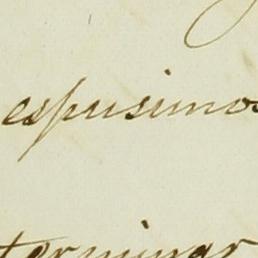 espusimos
terminar